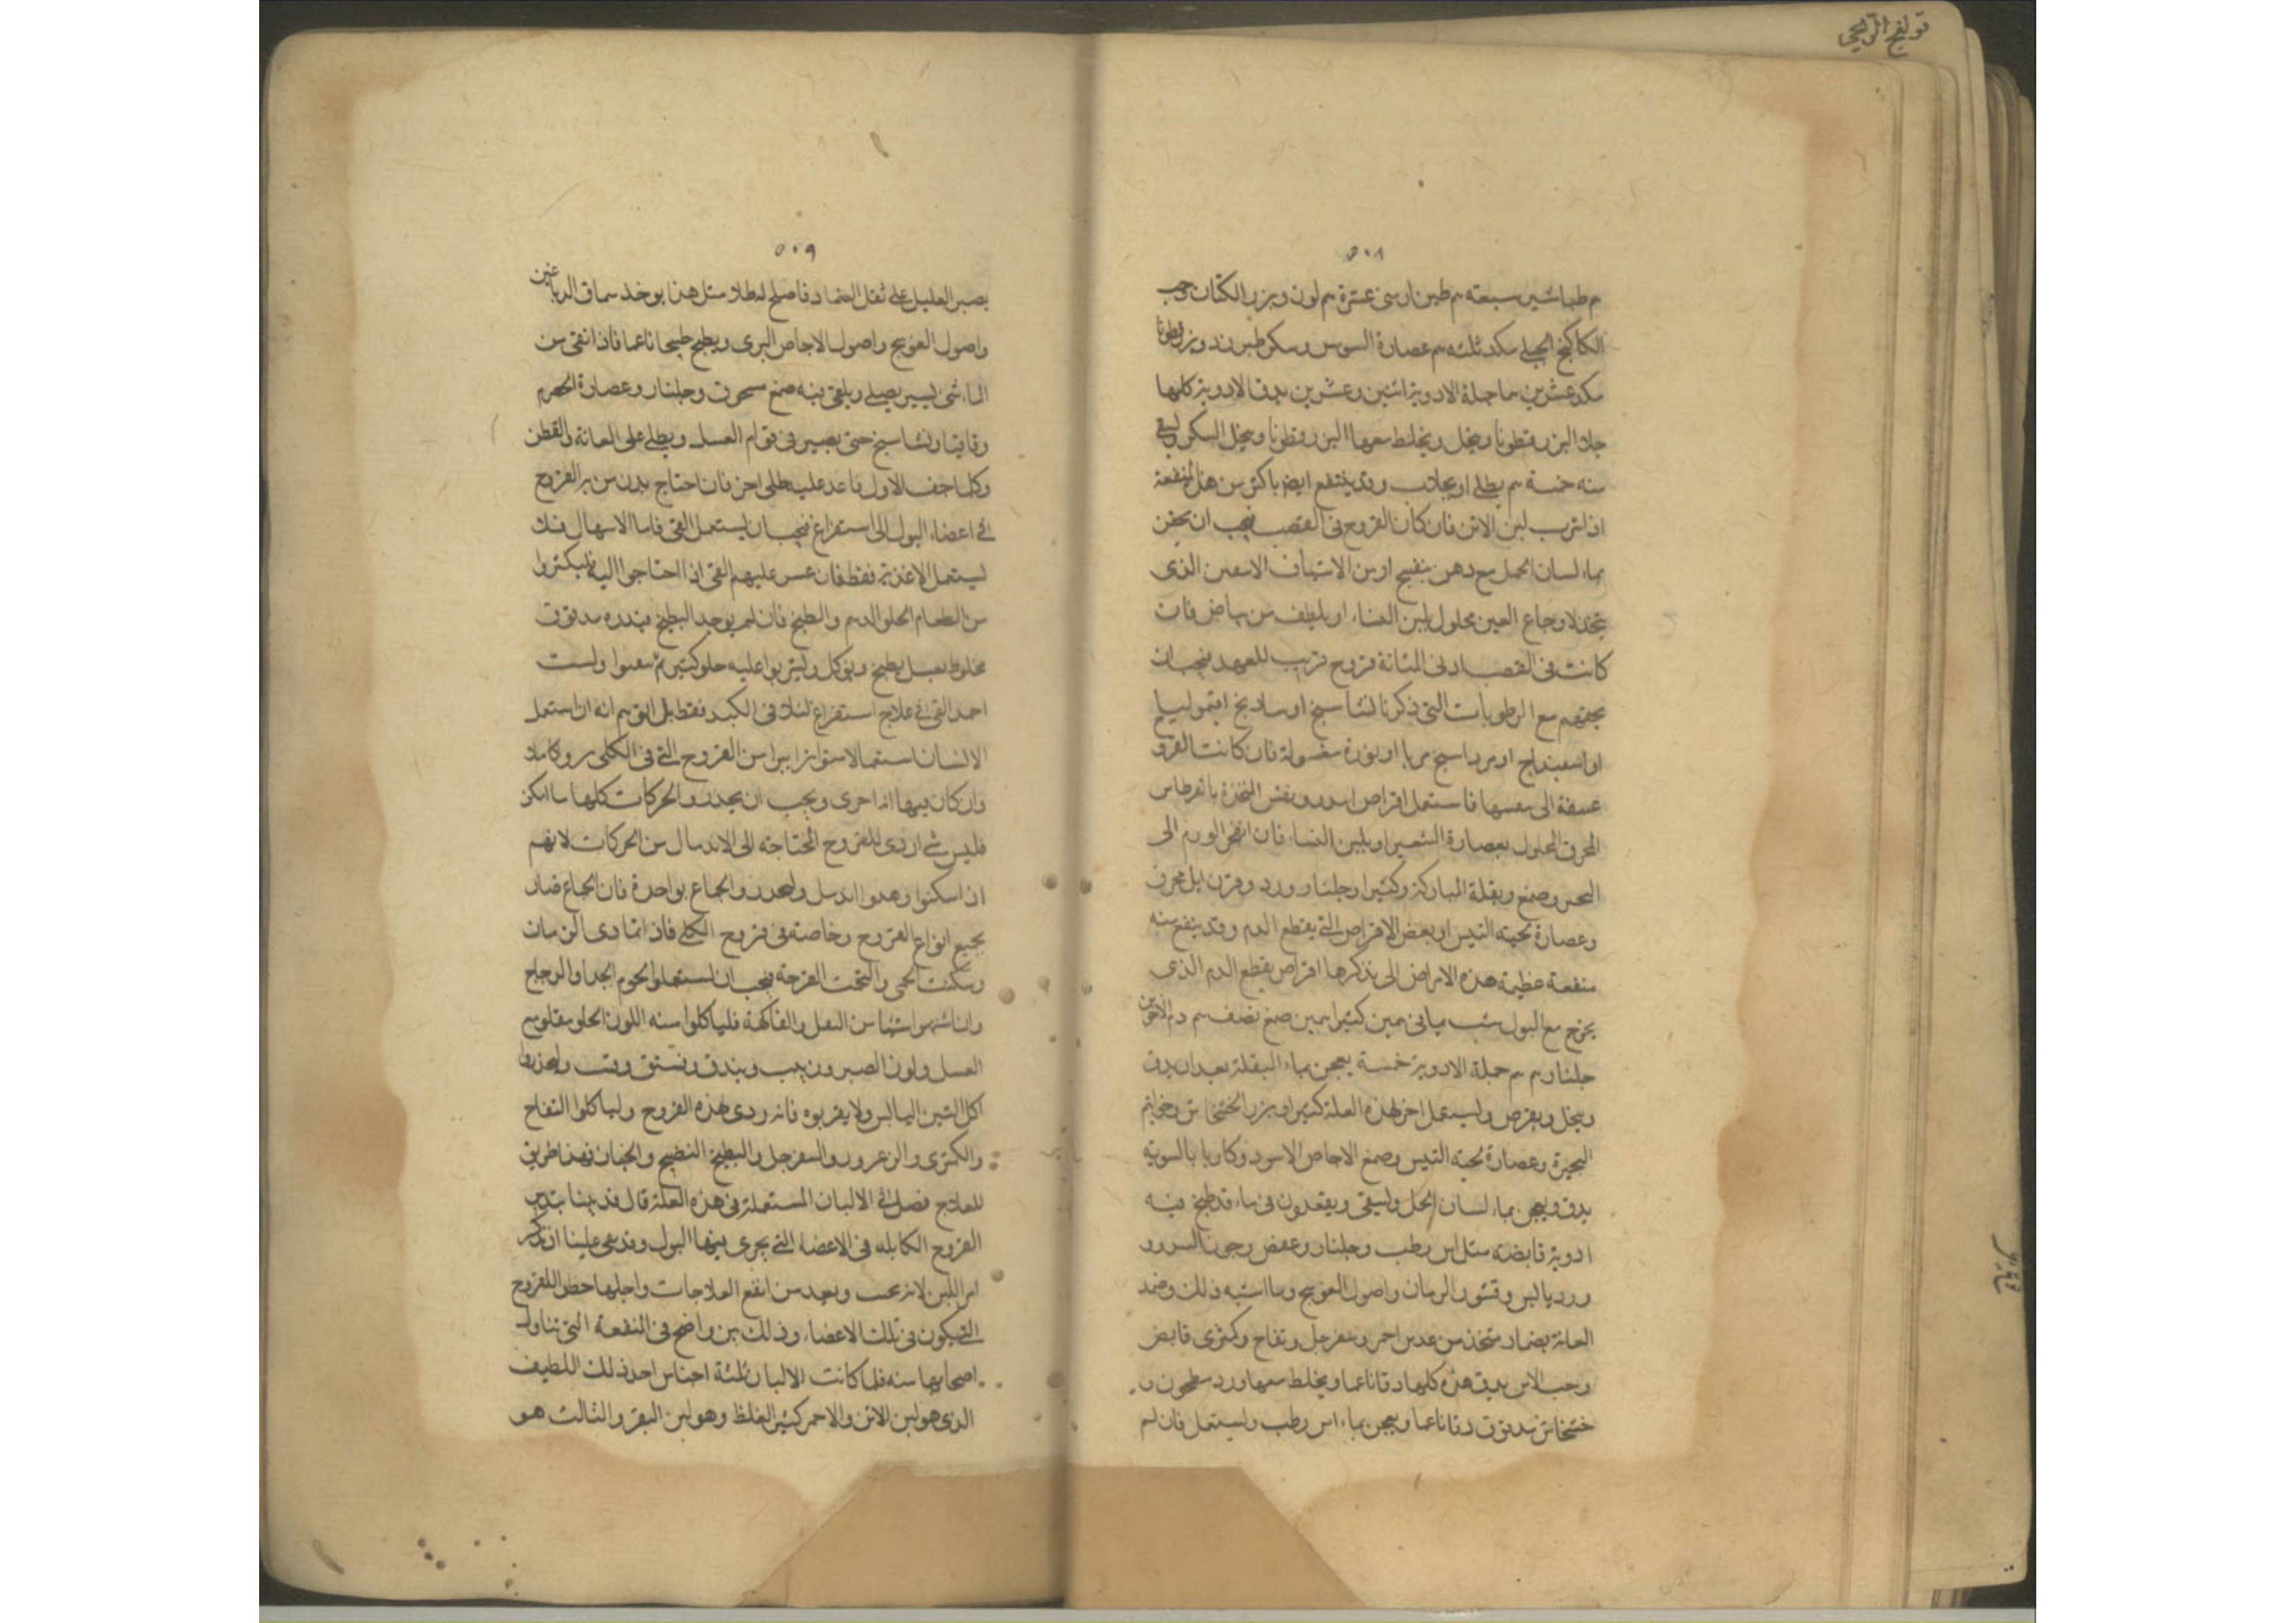 قولنج الريحي
٥٠٨
م طباشير سبعة م طين ارمني عشرة م لون وبزر الكتان وحب
الكاكنج الجبلي مكد ثلثه م عصارة السوس وسكر طبرزد وبزر قطونا
مكد عشرين ما جملة الادوية اثنين وعشرين يدق الادوية كلها
خلا البزر قطونا وينخل ويخلط معها البزر قطونا وينخل السكر ويسقى
منه خمسة م بطلي او بجلاب وقد ينتفع ايضا باكثر من هذا المنفعة
اذا شرب لبن الاتن فان كان القروح في القضيب فيجب ان يحقن
بماء لسان الحمل مع دهن بنفسج او من الاشياف الابيض الذي
يتخذ لاوجاع العين محلول بلبن النساء او بلطف من بياض فان
كانت في القضيب او في المثانة قروح قريب للعهد فيجب ان
يحقنهم مع الرطوبات التي ذكرنا نشاسبج او سادنج اقيموليا
او اسفيداج او مرداسنج مربا او نورة مغسولة فان كانت القرو
عسفة الى فاستعمل اقراص المتخذة بالقرطاس
المحرق المحلول بعصارة الشعير او بلبن النساء فان انفجر الورم الى
وصمغ وبقلة المباركة وكثيرا وجلنار وورد وقرن ايل محرق
وعصارة لحية التيس او بعض الاقراص التي يقطع الدم وقد ينفع منه
منفعة عظيمة هذه الامراض التي نذكرها اقراص يقطع الدم الذي
يخرج مع البول شب يماني كثيرا صمغ نصف م دم الاخوين
جلنار م م جملة الادوية خمسة يعجن بماء البقلة بعد ان يدق
وينخل ويقرص ويستعمل اخر لهذه العلة كثيرا وبزر الخشخاش وخواتم
البحيرة وعصارة لحية التيس وصمغ الاجاص الاسود وكاربا بالسوية
يدق ويعجن بماء لسان الحمل ويسقى ويقعدون في ماء قد طبخ فيه
ادوية قابضة مثل اس رطب وجلنار وعفص وجوز السرو و
ورد يابس وقشور الرمان واصول العوسج وما اشبه ذلك وضمد
العانة بضماد متخذ من عدس احمر وسفرجل وتفاح وكمثرى قابض
وحب الاس يدق هذه كلها دقا ناعما ويخلط معها ورد مطحون و
خشخاش مدقوق دقا ناعما ويعجن بماء اس رطب ويستعمل فان لم
٥٠٩
يصبر العليل على ثقل الضماد فاصلح له طلا مثل هذا يوخذ سماق الدباغين
واصول العوسج واصول الاجاص البري ويطبخ طبيخا ناعما فاذا انقى من
الماء شي يسير يصفى ويلقى فيه صمغ مسحوق وجلنار وعصارة الحصرم
وقاقيا ونشاسبج حتى يصير في قوام العسل ويطلى على العانة والقطن
وكلما جف الاول فاعد عليه طلي اخر فان احتاج بدن من به القروح
في اعضاء البول الى استفراغ فيجب ان يستعمل القي فاما الاسهال فلا
ليستعمل الاغذية فقط فان عسر عليهم القي اذا احتاجوا اليه فليكثروا
من الطعام الحلو الدسم والبطيخ فان لم يوجد البطيخ فبذره مدقوق
مخلوط بعسل يطبخ ويوكل وليشربوا عليه حلو كثير ثم ولست
احمد القي في علاج استفراغ لذلك في الكبد فقط بل انه ان استعمل
الانسان استعمالا متواترا ابرا من القروح التي في الكلى برو كاملا
وان كان فيها اذا جرى ويجب ان يحذروا الحركات كلها ما امكن
فليس شي اردى للقروح المحتاجة الى الاندمال من الحركات لانهم
ان اسكنوا وهدوا اندمل وليحذروا الجماع بواحدة فان الجماع ضار
بجميع انواع القروح وخاصة في قروح الكلى فاذا تمادى الزمان
وسكنت الحمى والتحمت القرحة فيجب ان يستعملوا لحوم الجدا والدجاج
وان اشتهوا شيئا من النقل والفاكهة فلياكلوا منه اللون الحلو مقلو مع
العسل ولون الصبر وزبيب وبندق وفستق وقت وليحذروا
اكل التين اليابس ولا يقربوه فانه ردى لهذه القروح ولياكلوا التفاح
والكمثرى والزعرور والسفرجل والبطيخ النضيج والخيار فهذا طريق
للعلاج فصل في الالبان المستعملة في هذه العلة قال قد بينا تدبير
القروح الكاينة في الاعضاء التي يجري فيها البول وقد بقي علينا ان نذكر
امر اللبن لانه يحب ويعد من انفع العلاجات واجلها خطرا للقروح
التي تكون في تلك الاعضاء وذلك بين واضح في المنفعة التي تناول
اصحابها منه فلما كانت الالبان ثلثة اجناس احد ذلك اللطيف
الذي هو لبن الاتن والاخر كثير الغلظ وهو لبن البقر والثالث هو